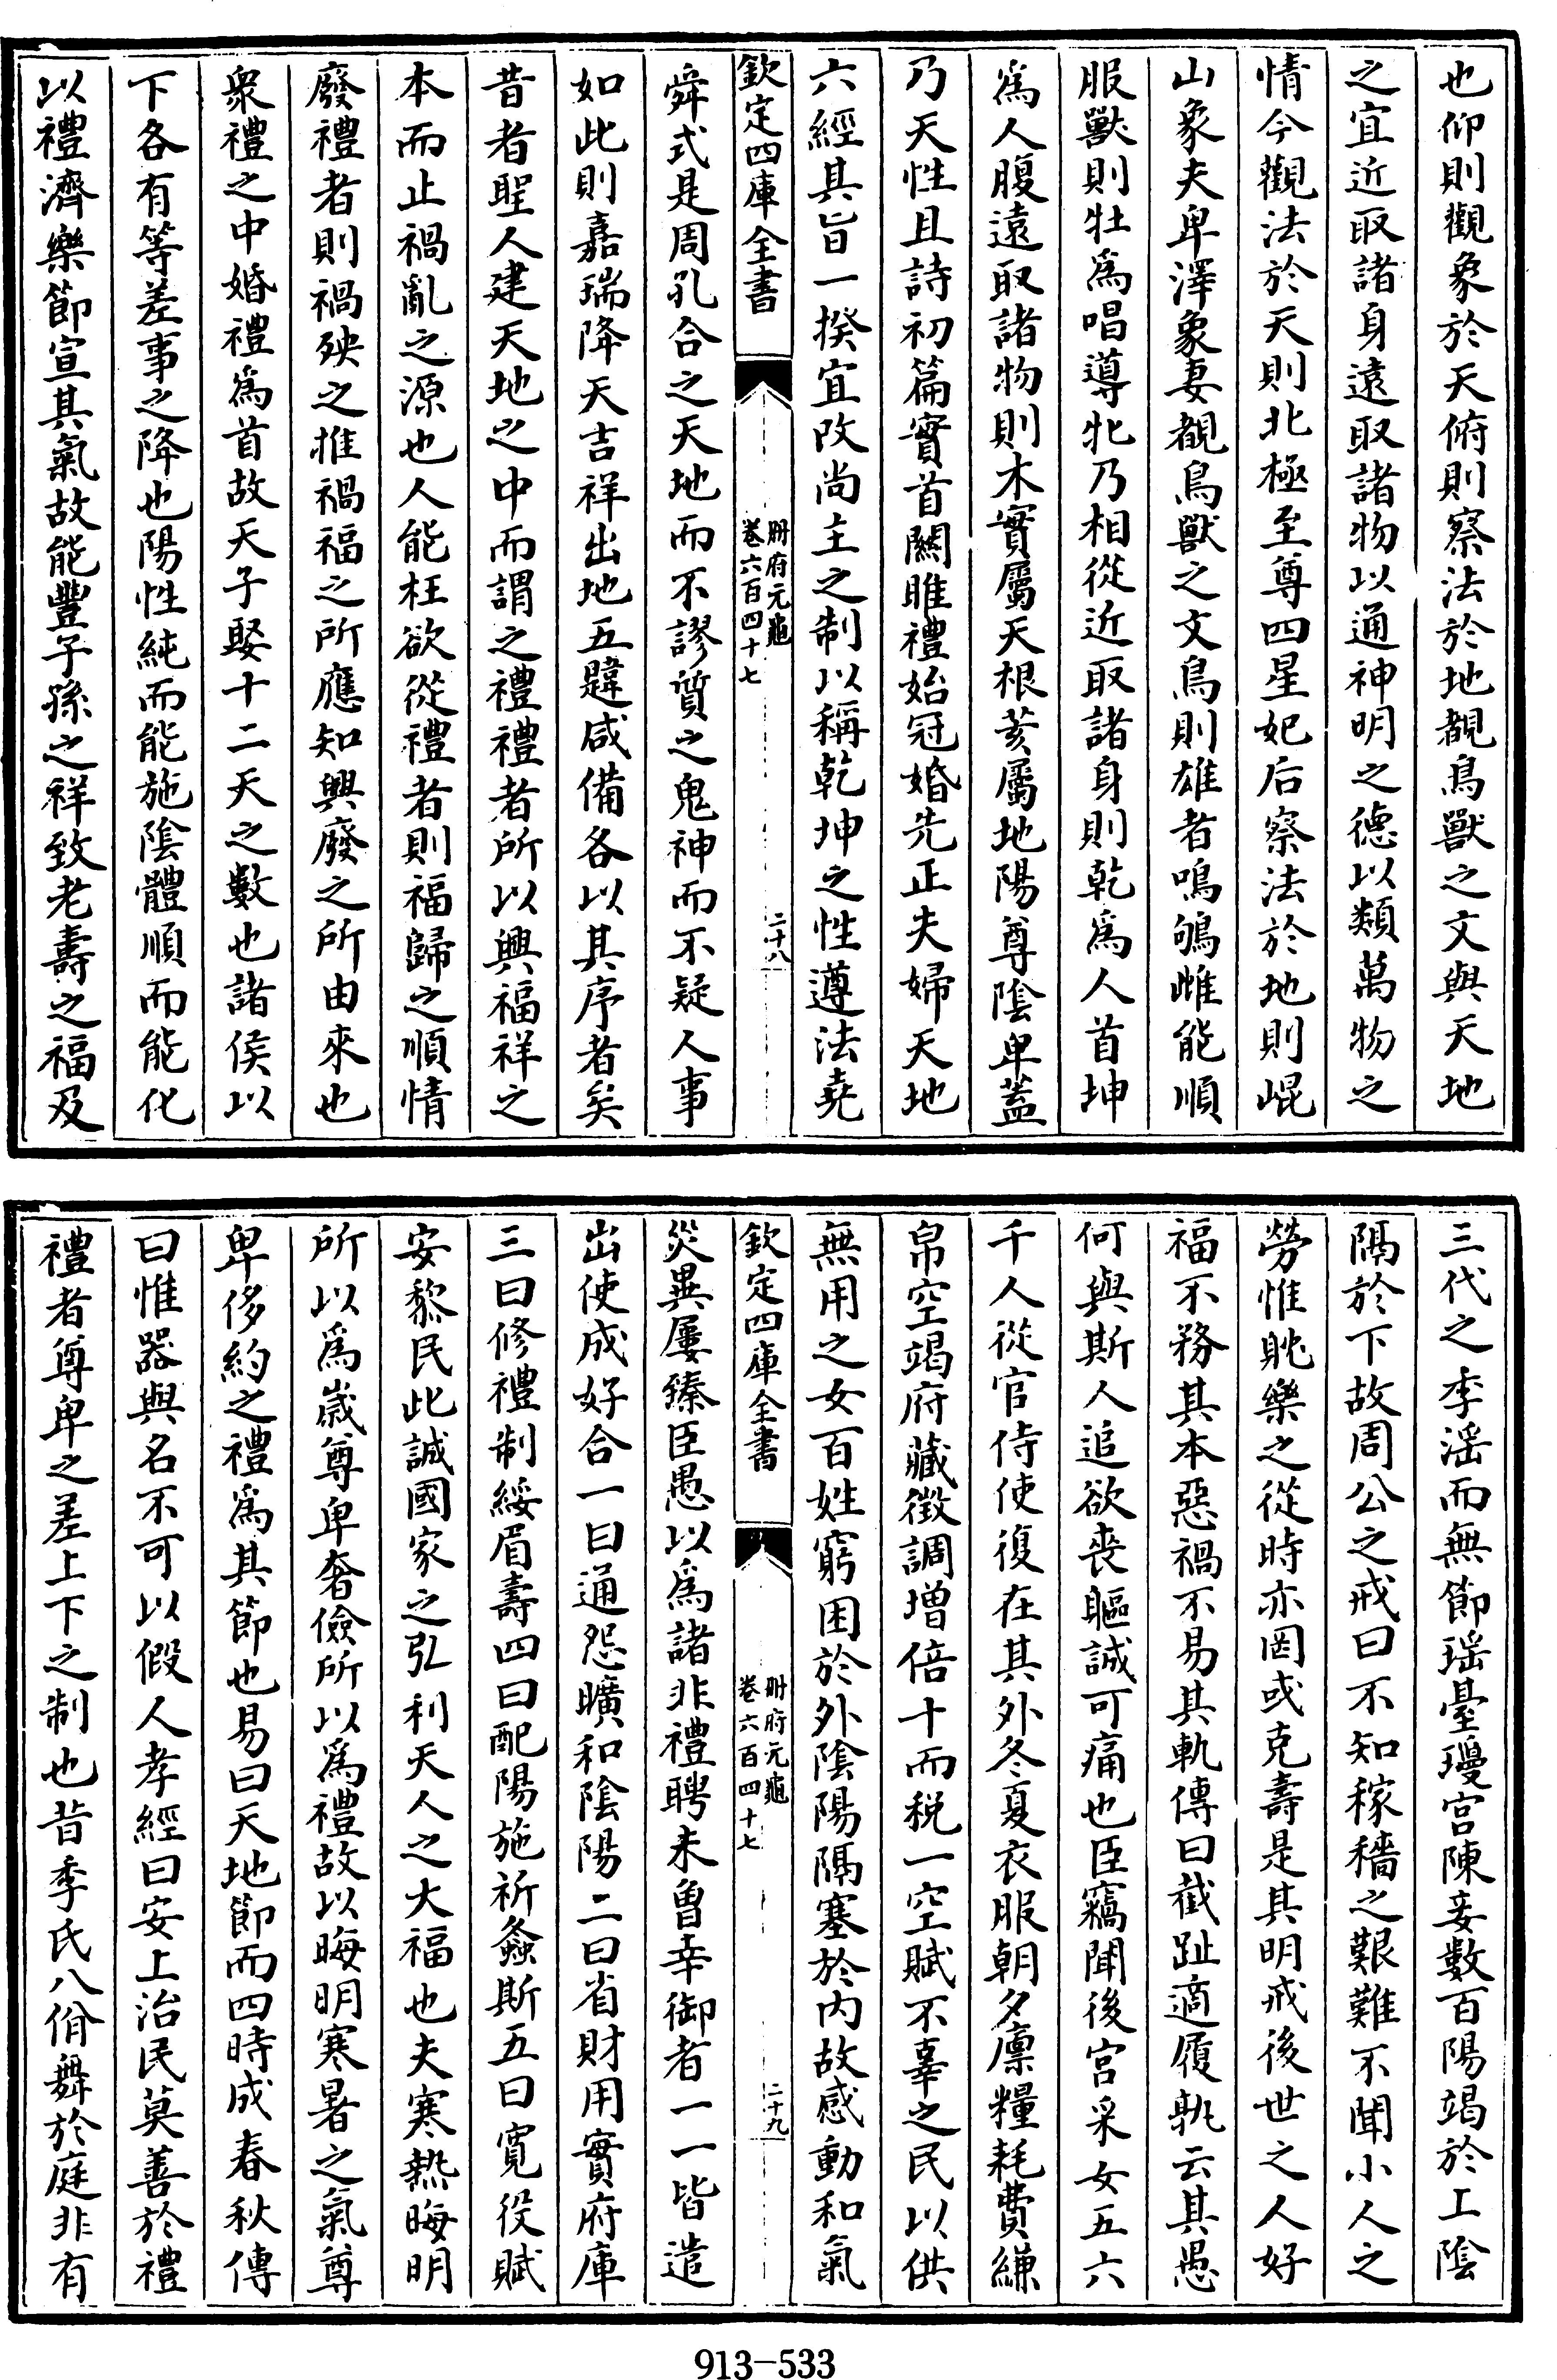 也仰則觀象於天俯則察法於地覩鳥獸之文與天地
之宜近取諸身遠取諸物以通神明之德以類萬物之
情今觀法於天則北極至尊四星妃后察法於地則崐
山象夫卑澤象妻覩鳥獸之文鳥則雄者鳴鴝雌能順
服獸則牡為唱導牝乃相從近取諸身則乾為人首坤
為人腹遠取諸物則木實屬天根荄屬地陽尊陰卑蓋
乃天性且詩初篇實首關雎禮始冠婚先正夫婦天地
六經其旨一揆宜改尚主之制以稱乾坤之性遵法堯
欽定四庫全書
冊府元龜
卷六百四十七
二十八
舜式是周孔合之天地而不謬質之鬼神而不疑人事
如此則嘉瑞降天吉祥出地五韙咸備各以其序者矣
昔者聖人建天地之中而謂之禮禮者所以興福祥之
本而止禍亂之源也人能枉欲從禮者則福歸之順情
廢禮者則禍殃之推禍福之所應知興廢之所由來也
衆禮之中婚禮為首故天子娶十二天之數也諸侯以
下各有等差事之降也陽性純而能施陰體順而能化
以禮濟樂節宣其氣故能豐子孫之祥致老壽之福及
三代之季滛而無節瑶臺瓊宮陳妾數百陽竭於上陰
隔於下故周公之戒曰不知稼穡之艱難不聞小人之
勞惟躭樂之從時亦罔或克壽是其明戒後世之人好
福不務其本惡禍不易其軌傳曰截趾適履孰云其愚
何與斯人追欲喪軀誠可痛也臣竊聞後宫采女五六
千人從官侍使復在其外冬夏衣服朝夕廪糧耗費縑
帛空竭府藏徵調增倍十而稅一空賦不辜之民以供
無用之女百姓窮困於外陰陽隔塞於内故感動和氣
欽定四庫全書
冊府元龜
卷六百四十七
二十九
災異屢臻臣愚以為諸非禮聘未曾幸御者一一皆遣
出使成好合一曰通怨曠和陰陽二曰省財用實府庫
三曰修禮制綏眉壽四曰配陽施祈螽斯五曰寛役賦
安黎民此誠國家之弘利天人之大福也夫寒熱晦明
所以為歲尊卑奢儉所以為禮故以晦明寒暑之氣尊
卑侈約之禮為其節也易曰天地節而四時成春秋傳
曰惟器與名不可以假人孝經曰安上治民莫善於禮
禮者尊卑之差上下之制也昔季氏八佾舞於庭非有
913-533